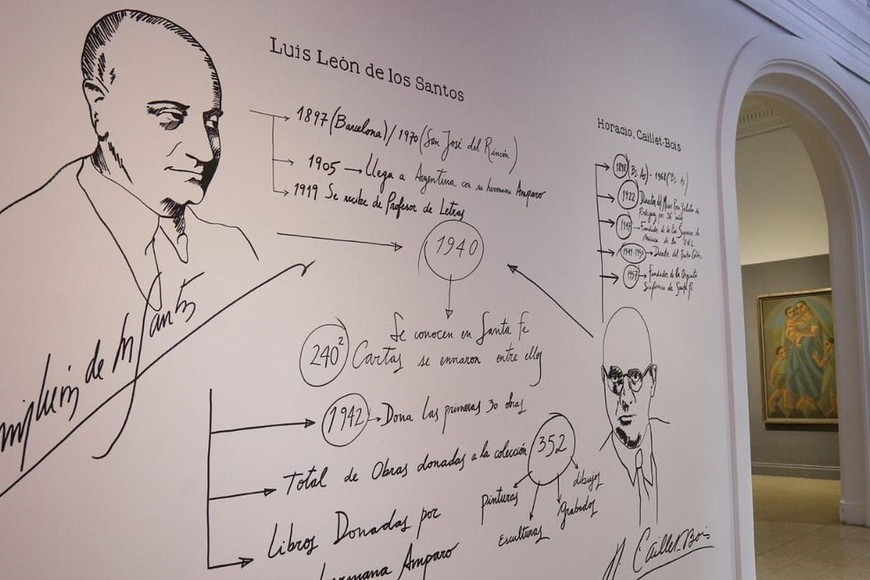 Luis León de los Santos
1897 (Barcelona) / 1970 (San José del Rincón)
1905 → Llega a Argentina con su hermana Amparo
1919 Se recibe de Profesor de Letras
1940
Se conocen en Santa Fe
240² Cartas se enviaron entre ellos
1942 → Dona las primeras 30 obras
Total de Obras donadas a la colección 352
pinturas
esculturas
grabados
dibujos
Libros Donados por
hermana Amparo
de los Santos
Horacio, Caillet-Bois
1898 (Bs As) - 1968 (Bs As)
1922 Director del Museo
Rodríguez por
Fundador de
Música de la U.N.L
Director del Teatro Colón
1957 Fundador de la Orquesta
Sinfónica de Santa Fe
H Caillet-Bois